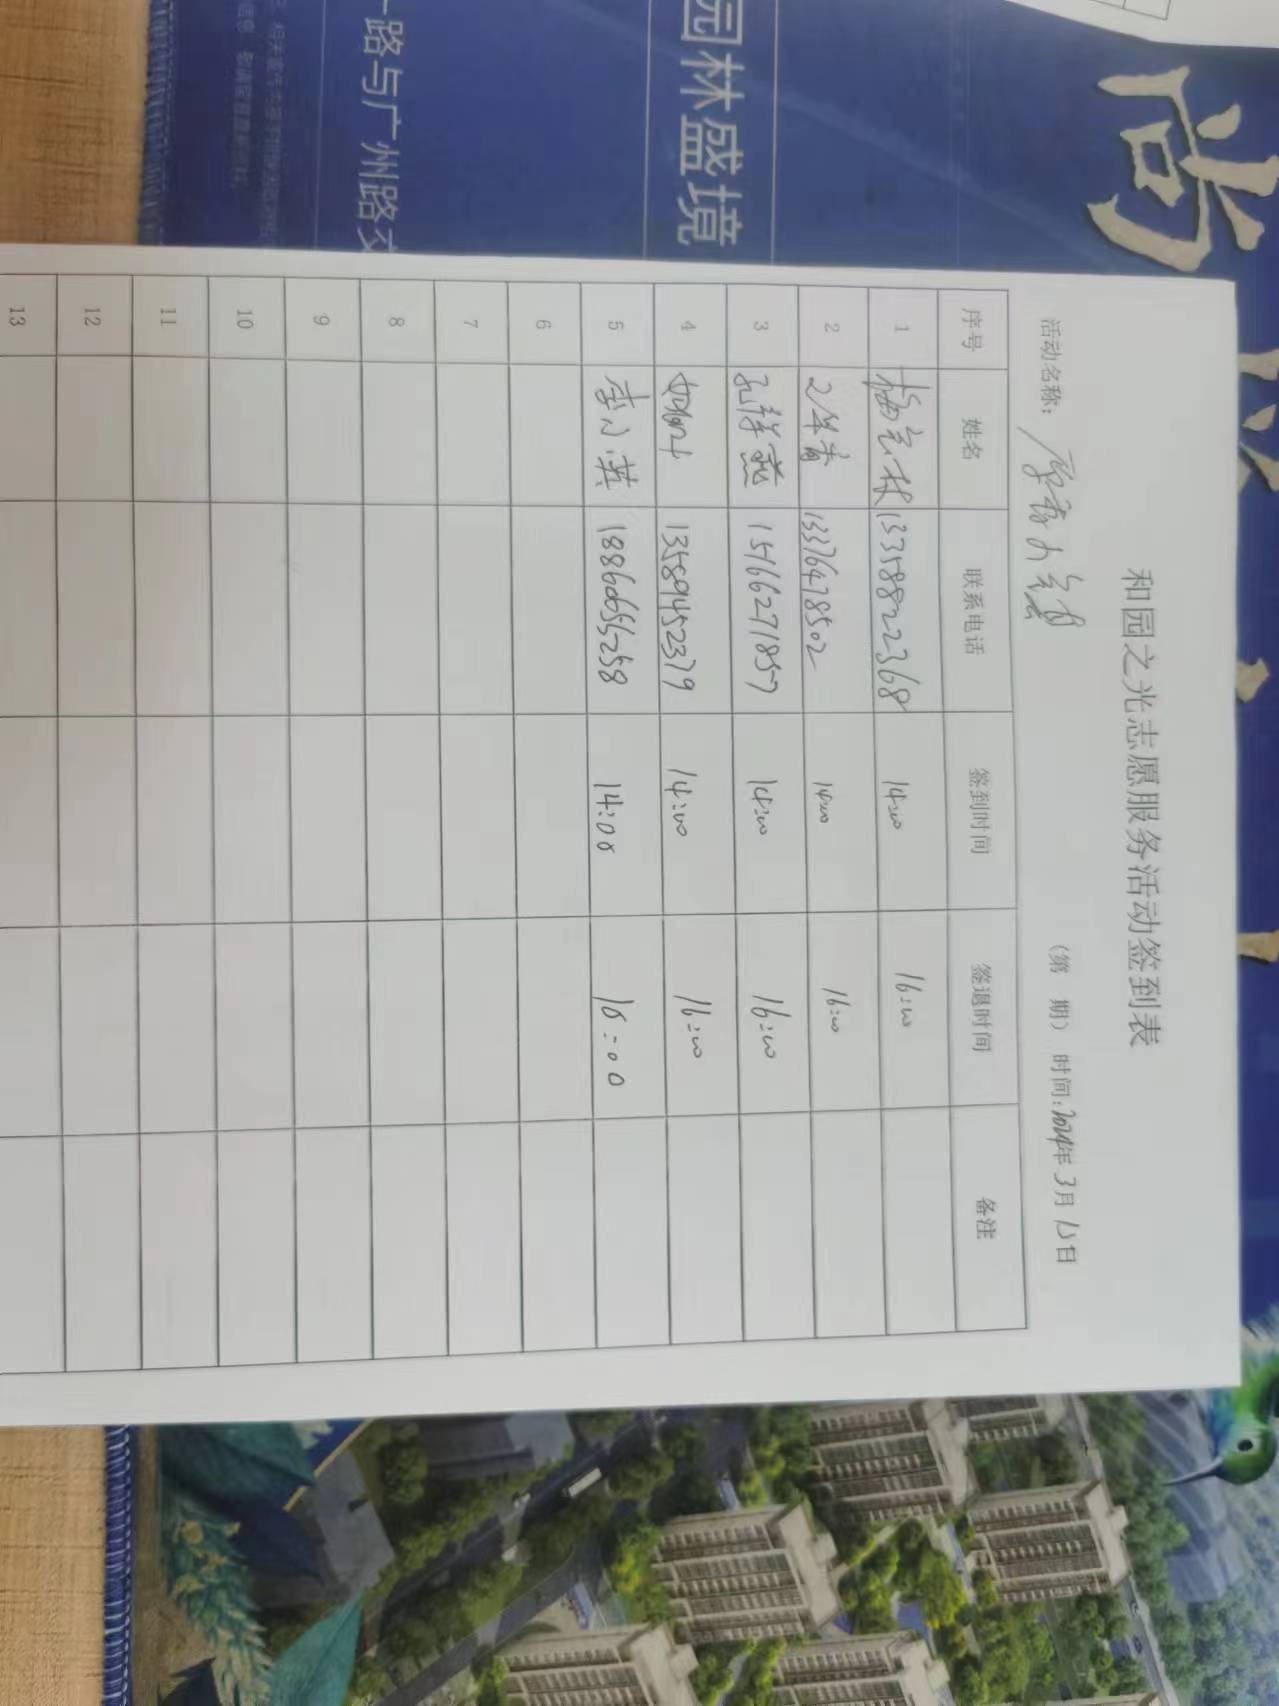 和园之光志愿服务活动签到表
活动名称： （第 期） 时间：2024年3月13日
序号 姓名 联系电话 签到时间 签退时间 备注
1 13358822368 14:00 16:00
2 13376478502 14:00 16:00
3 15166271857 14:00 16:00
4 13589452379 14:00 16:00
5 李小英 18866655258 14:00 16:00
6
7
8
9
10
11
12
13
尚
园林盛境
一路与广州路交